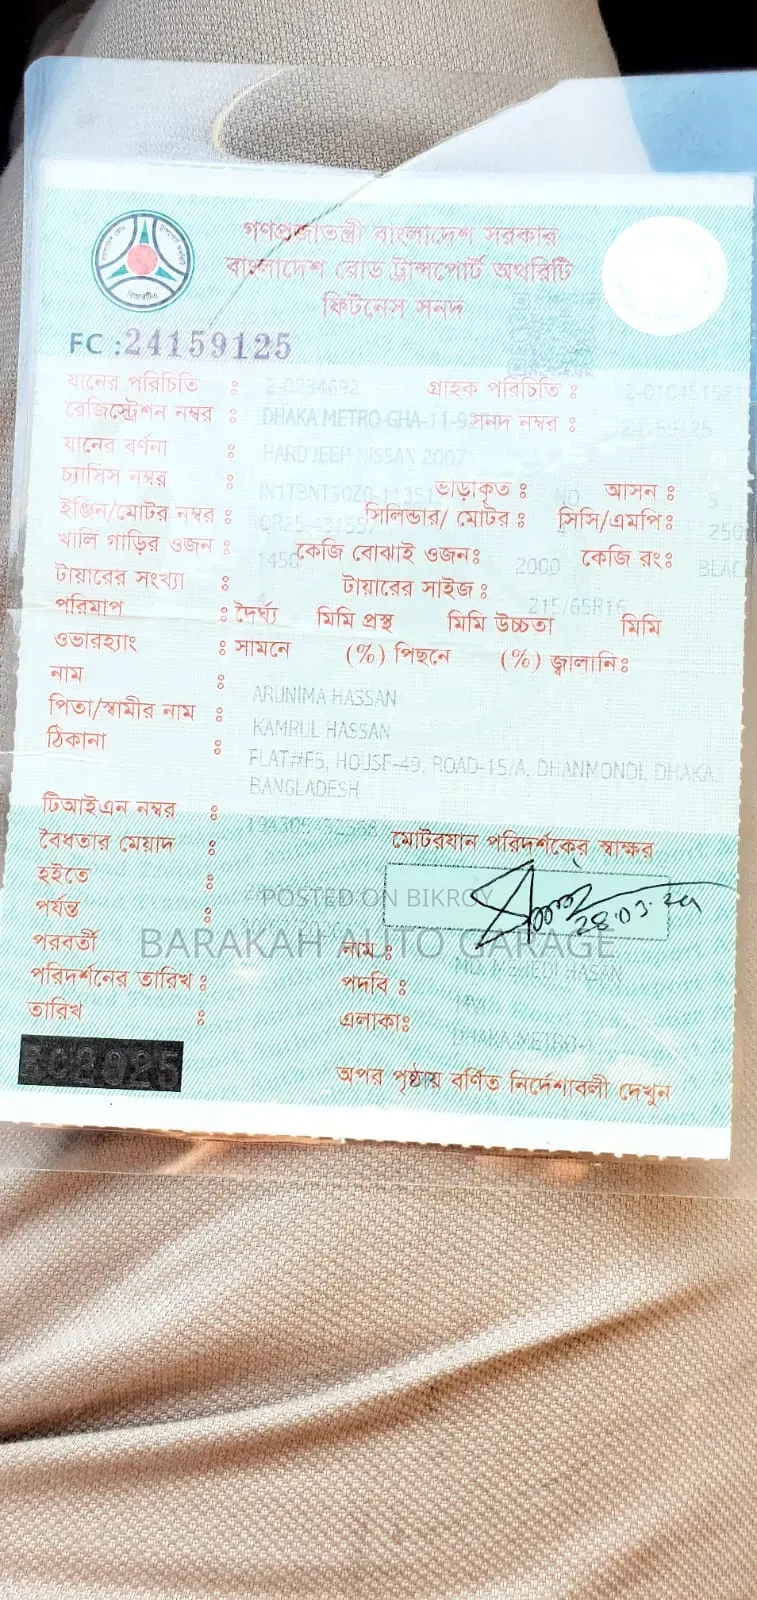 গণপ্রজাতন্ত্রী বাংলাদেশ সরকার
বাংলাদেশ রোড ট্রান্সপোর্ট অথরিটি
ফিটনেস সনদ
FC :24159125
যানের পরিচিতি : 2-0234692 গ্রাহক পরিচিতি :
রেজিস্ট্রেশন নম্বর : DHAKA METRO-GHA-11-9 সনদ নম্বর : 24159125
যানের বর্ণনা : HARD JEEP NISSAN 2007
চ্যাসিস নম্বর : ভাড়াকৃত : NO আসন : 5
ইঞ্জিন/মোটর নম্বর : সিলিন্ডার/ মোটর : 4 সিসি/এমপি: 250
খালি গাড়ির ওজন : 1450 কেজি বোঝাই ওজন: 2000 কেজি রং: BLAC
টায়ারের সংখ্যা : 4 টায়ারের সাইজ : 215/65R16
পরিমাপ : দৈর্ঘ্য মিমি প্রস্থ মিমি উচ্চতা মিমি
ওভারহ্যাং : সামনে (%) পিছনে (%) জ্বালানি:
নাম : ARUNIMA HASSAN
পিতা/স্বামীর নাম : KAMRUL HASSAN
ঠিকানা : FLAT#F5, HOUSE-49, ROAD-15/A, DHANMONDI, DHAKA,
BANGLADESH
টিআইএন নম্বর :
বৈধতার মেয়াদ : মোটরযান পরিদর্শকের স্বাক্ষর
হইতে :
পর্যন্ত : 28.03.24
POSTED ON BIKROY
BARAKAH AUTO GARAGE
পরবর্তী নাম : HASAN
পরিদর্শনের তারিখ : পদবি :
তারিখ : এলাকা: DHAKA METRO-1
অপর পৃষ্ঠায় বর্ণিত নির্দেশাবলী দেখুন